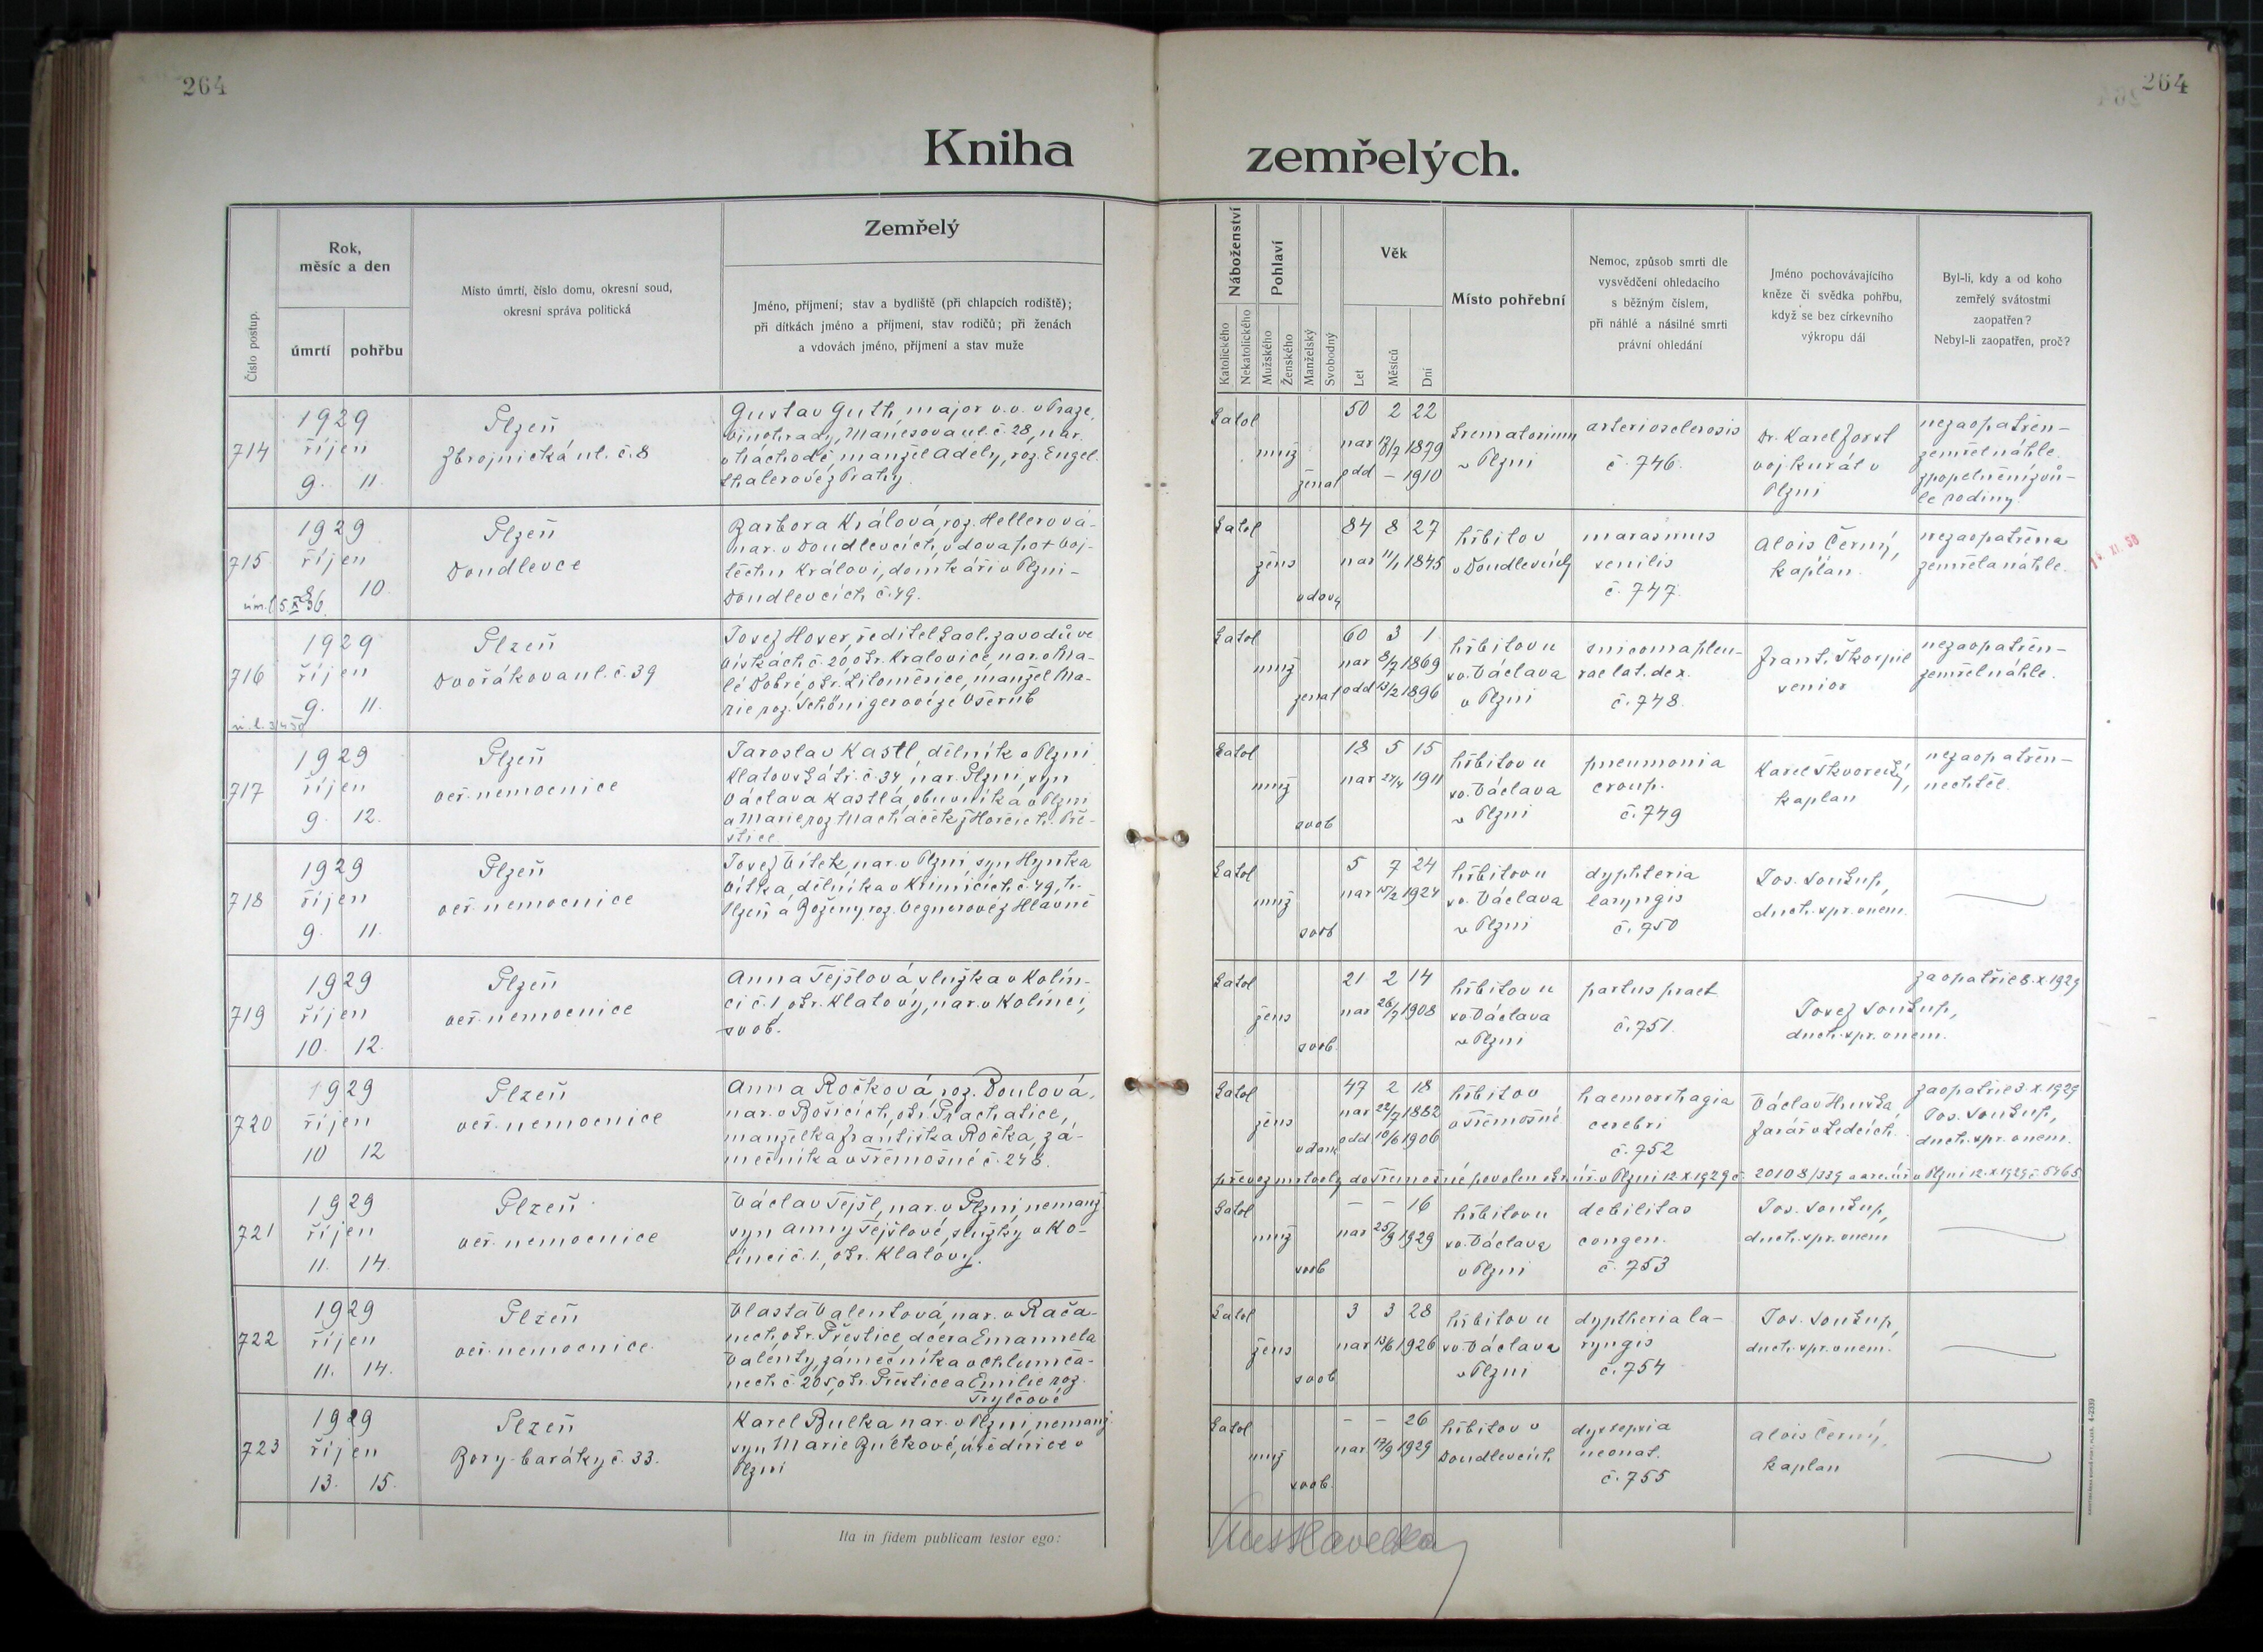 264
264
Kniha
zemřelých.
Číslo postup.
Rok,
měsíc a den
úmrtí
pohřbu
Místo úmrtí, číslo domu, okresní soud,
okresní správa politická
Zemřelý
Jméno, příjmení; stav a bydliště (při chlapcích rodiště);
při dítkách jméno a příjmení, stav rodičů; při ženách
a vdovách jméno, příjmení a stav muže
Náboženství
Katolického
Nekatolického
Pohlaví
Mužského
Ženského
Manželský
Svobodný
Věk
Let
Měsíců
Dní
Místo pohřební
Nemoc, způsob smrti dle
vysvědčení ohledacího
s běžným číslem,
při náhlé a násilné smrti
právní ohledání
Jméno pochovávajícího
kněze či svědka pohřbu,
když se bez církevního
výkropu dál
Byl-li, kdy a od koho
zemřelý svátostmi
zaopatřen?
Nebyl-li zaopatřen, proč?
714
1929
říjen
9. 11.
Plzeň
Zbrojnická ul. č. 8
Gustav Guth, major v.v. v Praze,
Vinohrady, Mánesova ul. č. 28, nar.
v Náchodě manžel Adély, roz. Engel-
thalerové z Prahy.
katol
muž
ženat
50 2 22
nar 18/7 1879
odd – 1910
krematorium
v Plzni
arteriosclerosis
č. 746.
Dr. Karel Forst
voj. kurát v
Plzni
nezaopatřen-
zemřel náhle.
zpopelnění z vů-
le rodiny.
715
1929
říjen
8. 10.
Plzeň
Doudlevce
Barbora Králová, roz. Hellerová-
nar. v Doudlevcích, vdova po † Voj-
těchu Královi, domkáři v Plzni-
Doudlevcích č. 49.
katol
žens
vdovy
84 8 27
nar 11/1 1845
hřbitov
v Doudlevcích
marasmus
senilis
č. 747.
Alois Černý,
kaplan.
nezaopatřena
zemřela náhle.
716
1929
říjen
9. 11.
Plzeň
Dvořákova ul. č. 39
Josef Hover, ředitel kaol. závodů ve
Vískách č. 20, okr. Kralovice, nar. v Ma-
lé Dobré, okr. Litoměřice, manžel Ma-
rie roz. Schönigerové ze Všerub
katol
muž
ženat
60 3 1
nar 8/7 1869
odd 15/2 1896
hřbitov u
sv. Václava
v Plzni
raelat. dex.
č. 748.
Frant. Škorpil
senior
nezaopatřen-
zemřel náhle.
717
1929
říjen
9. 12.
Plzeň
veř. nemocnice
Jaroslav Kastl, dělník v Plzni
Klatovská tř. č. 34, nar. Plzni, syn
Václava Kastla, obuvníka v Plzni
a Marie, roz. Macháček z Horšic h. Pře-
štice
katol
muž
svob
18 5 15
nar 24/4 1911
hřbitov u
sv. Václava
v Plzni
pneumonia
croup.
č. 749
Karel Škvorecký,
kaplan
nezaopatřen-
nechtěl.
718
1929
říjen
9. 11.
Plzeň
veř. nemocnice
Josef Vítek, nar. v Plzni, syn Hynka
Vítka, dělníka v Křimicích č. 49, h.
Plzeň a Boženy roz. Vegnerové z Hlavně
katol
muž
svob
5 7 24
nar 15/2 1924
hřbitov u
sv. Václava
v Plzni
dyphteria
laryngis
č. 750
Jos. Soukup,
duch. spr. v nem.
719
1929
říjen
10. 12.
Plzeň
veř. nemocnice
Anna Tejšlová služka v Kolin-
ci č. 1, okr. Klatovy, nar. v Kolinci,
svob.
katol
žens
svob.
21 2 14
nar 26/7 1908
hřbitov u
sv. Václava
v Plzni
partus praet.
č. 751.
zaopatřil 8. X. 1929
Josef Soukup,
duch. spr. v nem.
720
1929
říjen
10 12
Plzeň
veř. nemocnice
Anna Ročková, roz. Boulová,
nar. v Bošicích, okr. Prachatice,
manželka Františka Ročka, zá-
mečníka v Třemošné č. 248.
katol
žens
vdaná
47 2 18
nar 22/7 1882
odd 10/6 1906
hřbitov
v Třemošné
haemorrhagia
cerebri
č. 752
Václav Hruška,
farář v Ledcích.
zaopatřil 3. X. 1929
Jos. Soukup,
duch. spr. v nem.
převoz mrtvoly do Třemošné povolen okr. úř. v Plzni 12 X 1929 č. 20108/339 v Plzni 12. X 1929 č. 5465
721
1929
říjen
11. 14.
Plzeň
veř. nemocnice
Václav Tejšl, nar. v Plzni, nemanž
syn Anny Tejšlové, služky v Ko-
linci č. 1, okr. Klatovy.
katol
muž
svob
– – 16
nar 25/9 1929
hřbitov u
sv. Václava
v Plzni
debilitas
congen.
č. 753
Jos. Soukup,
duch. spr. v nem
722
1929
říjen
11. 14.
Plzeň
veř. nemocnice
Vlasta Valentová, nar. v Rača-
nech, okr. Přeštice, dcera Emanuela
Valenty, zámečníka v Chlumča-
nech č. 205, okr. Přeštice a Emilie roz.
Trylčové
katol
žens
svob
3 3 28
nar 13/6 1926
hřbitov u
sv. Václava
v Plzni
dyptheria la-
ryngis
č. 754
Jos. Soukup,
duch. spr. v nem.
723
1929
říjen
13. 15.
Plzeň
Bory-baráky č. 33.
Karel Bulka nar. v Plzni, nemanž
syn Marie Bulkové, úřednice v
Plzni
katol
muž
svob.
– – 26
nar 17/9 1929
hřbitov v
Doudlevcích
dyspepsia
neonat.
č. 755
Alois Černý,
kaplan
Ita in fidem publicam testor ego: